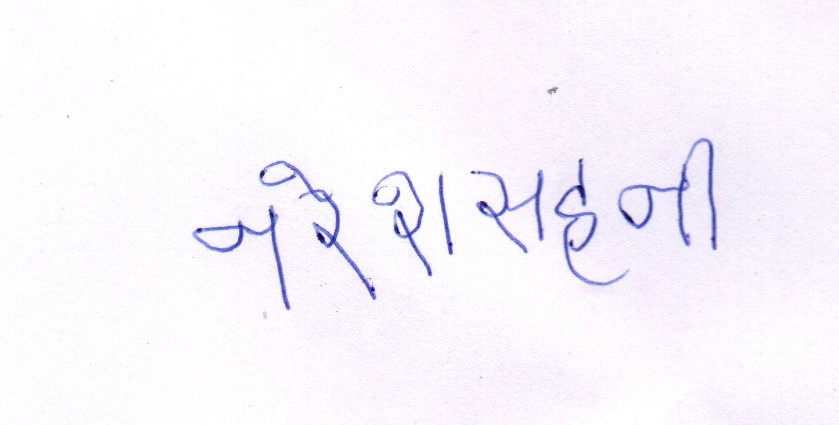 नरेश सहनी